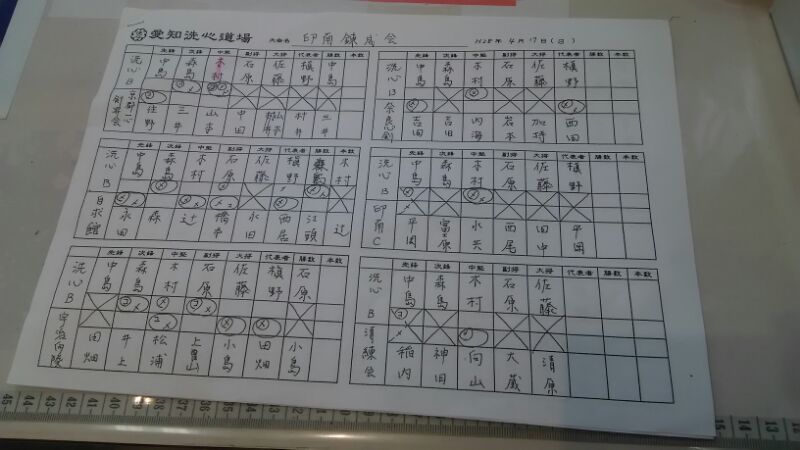 愛知洗心道場 大会名 印南錬成会 H28年 4月 17日(日)
先鋒 次鋒 中堅 副将 大将 代表者 勝数 本数
洗心B 中島 森島 木村 石原 佐藤 槇野 中島
住野 三井 山本 中田 村井 三井
先鋒 次鋒 中堅 副将 大将 代表者 勝数 本数
洗心B 中島 森島 木村 石原 佐藤 槇野
吉田 吉田 内海 岩本 加持 西田
先鋒 次鋒 中堅 副将 大将 代表者 勝数 本数
洗心B 中島 森島 木村 石原 佐藤 槇野 木村
日求館 永田 森 辻 橋本 永田 西居 江頭 辻
先鋒 次鋒 中堅 副将 大将 代表者 勝数 本数
洗心B 中島 森島 木村 石原 佐藤 槇野
印南C 平岡 冨原 西尾 田中 平岡
先鋒 次鋒 中堅 副将 大将 代表者 勝数 本数
洗心B 中島 森島 木村 石原 佐藤 槇野 石原
田畑 井上 松浦 上畠山 小島 田畑 小島
先鋒 次鋒 中堅 副将 大将 代表者 勝数 本数
洗心B 中島 森島 木村 石原 佐藤
清練会 稲内 神田 向山 大蔵 清原
45 44 43 42 41 40 39 38 37 36 35 34